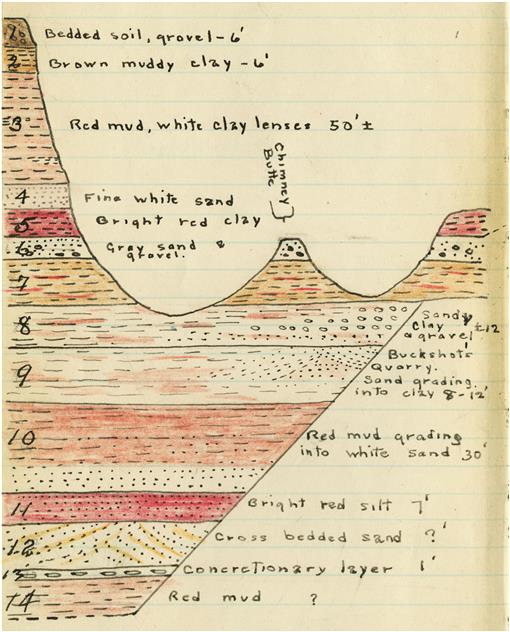 1
Bedded soil, gravel - 6'
2
Brown muddy clay - 6'
3
Red mud, white clay lenses 50'±
Chimney
Butte
4
Fine white sand
5
Bright red clay
6
Gray sand &
gravel.
7
8
Sandy
clay ±12
& gravel
Buckshots
Quarry.
9
Sand grading
into clay 8-12'
10
Red mud grading
into white sand 30'
11
Bright red silt 7'
12
Cross bedded sand ?'
13
Concretionary layer 1'
14
Red mud ?